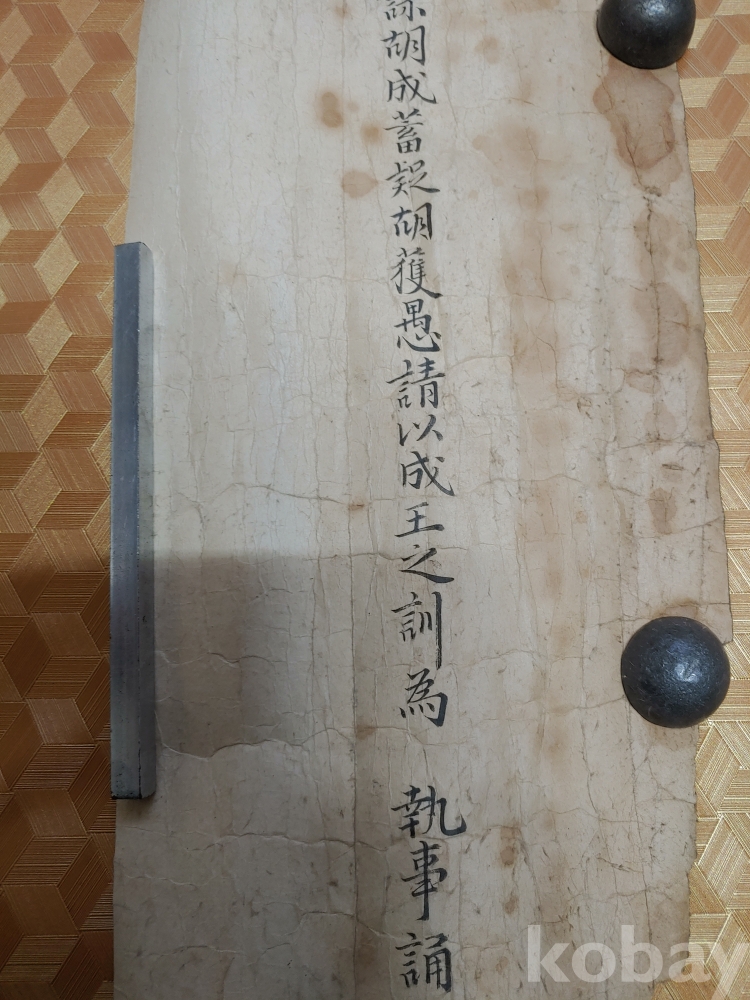 胡成蓄疑胡獲愚請以成王之訓為 執事誦
kobay